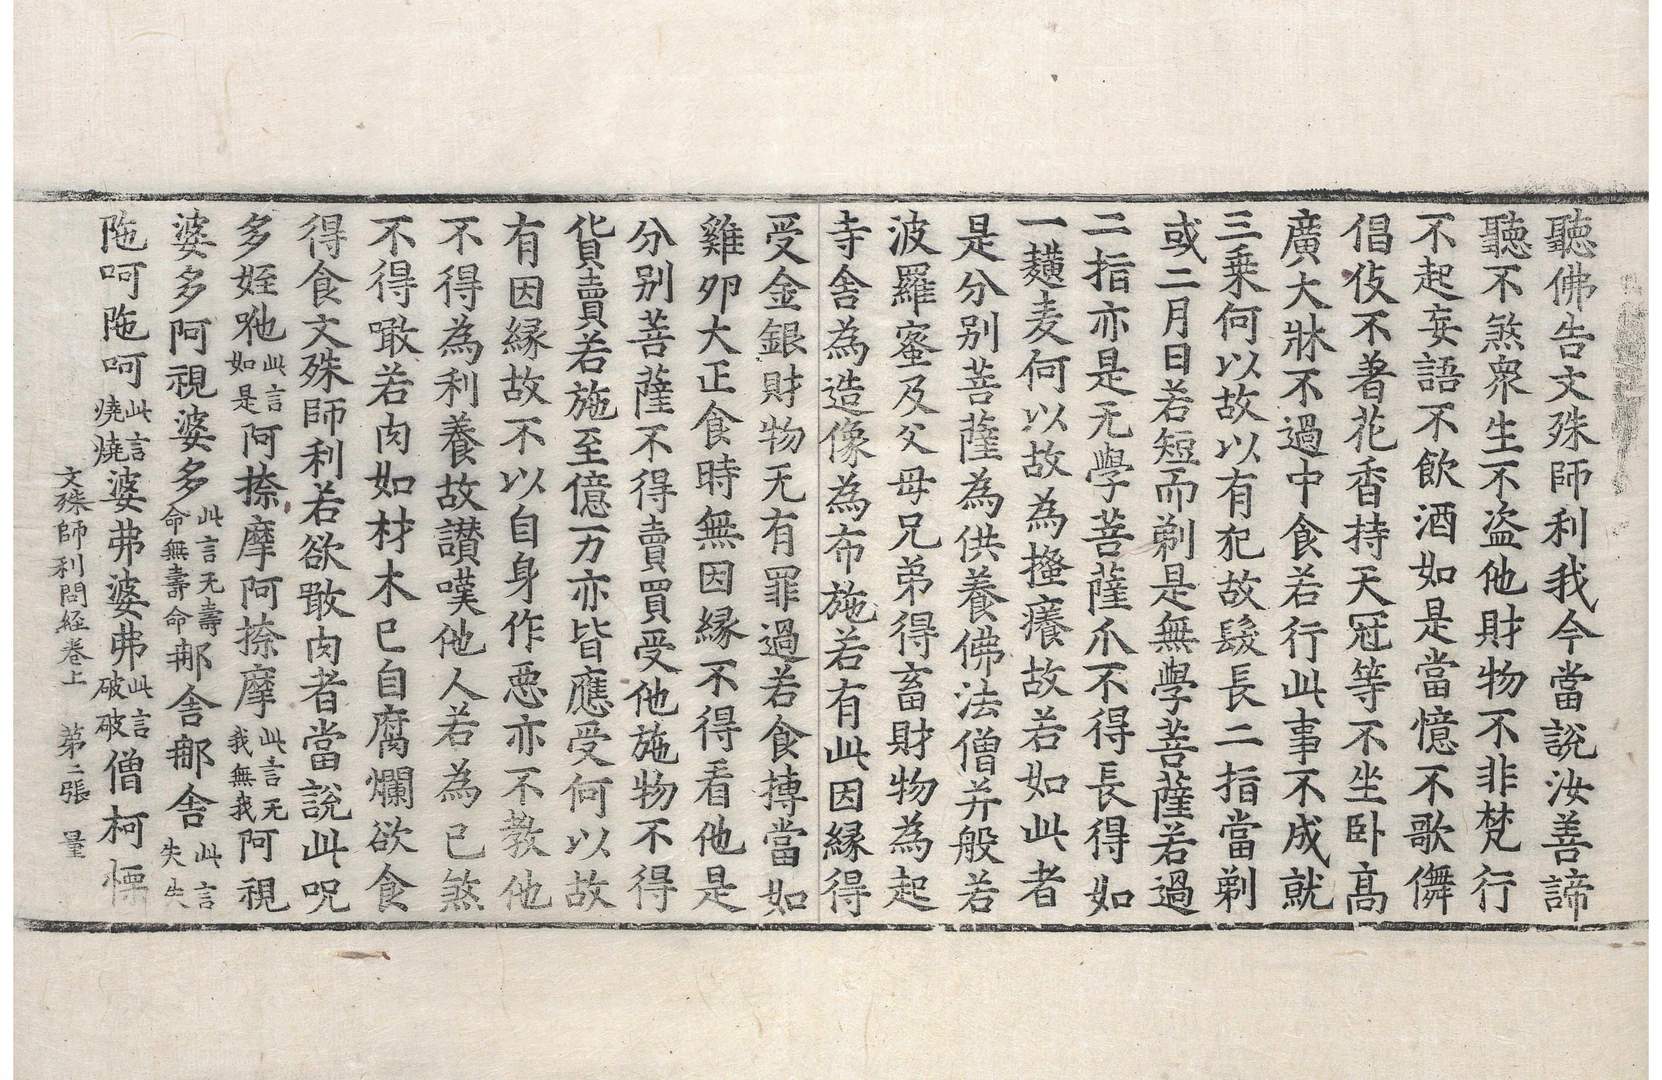 聽佛告文殊師利我今當說汝善諦
聽不煞衆生不盗他財物不非梵行
不起妄語不飲酒如是當憶不歌儛
倡伎不著花香持天冠等不坐卧高
廣大牀不過中食若行此事不成就
三乗何以故以有犯故髮長二指當剃
或二月日若短而剃是無學菩薩若過
二指亦是无學菩薩爪不得長得如
一䵃麦何以故為搔癢故若如此者
是分别菩薩為供養佛法僧并般若
波羅蜜及父母兄弟得畜財物為起
寺舎為造像為布施若有此因縁得
受金銀財物无有罪過若食摶當如
雞夘大正食時無因縁不得看他是
分别菩薩不得賣買受他施物不得
貨賣若施至億万亦皆應受何以故
有因縁故不以自身作惡亦不教他
不得為利養故讃嘆他人若為已煞
不得噉若肉如材木已自腐爛欲食
得食文殊師利若欲噉肉者當說此呪
多姪咃此言如是阿捺摩阿捺摩此言无我無我阿視
婆多阿視婆多此言无壽命無壽命那舎那舎此言失失
陁呵陁呵此言燒燒婆弗婆弗此言破破僧柯慄
文殊師利問経卷上　第二張　量